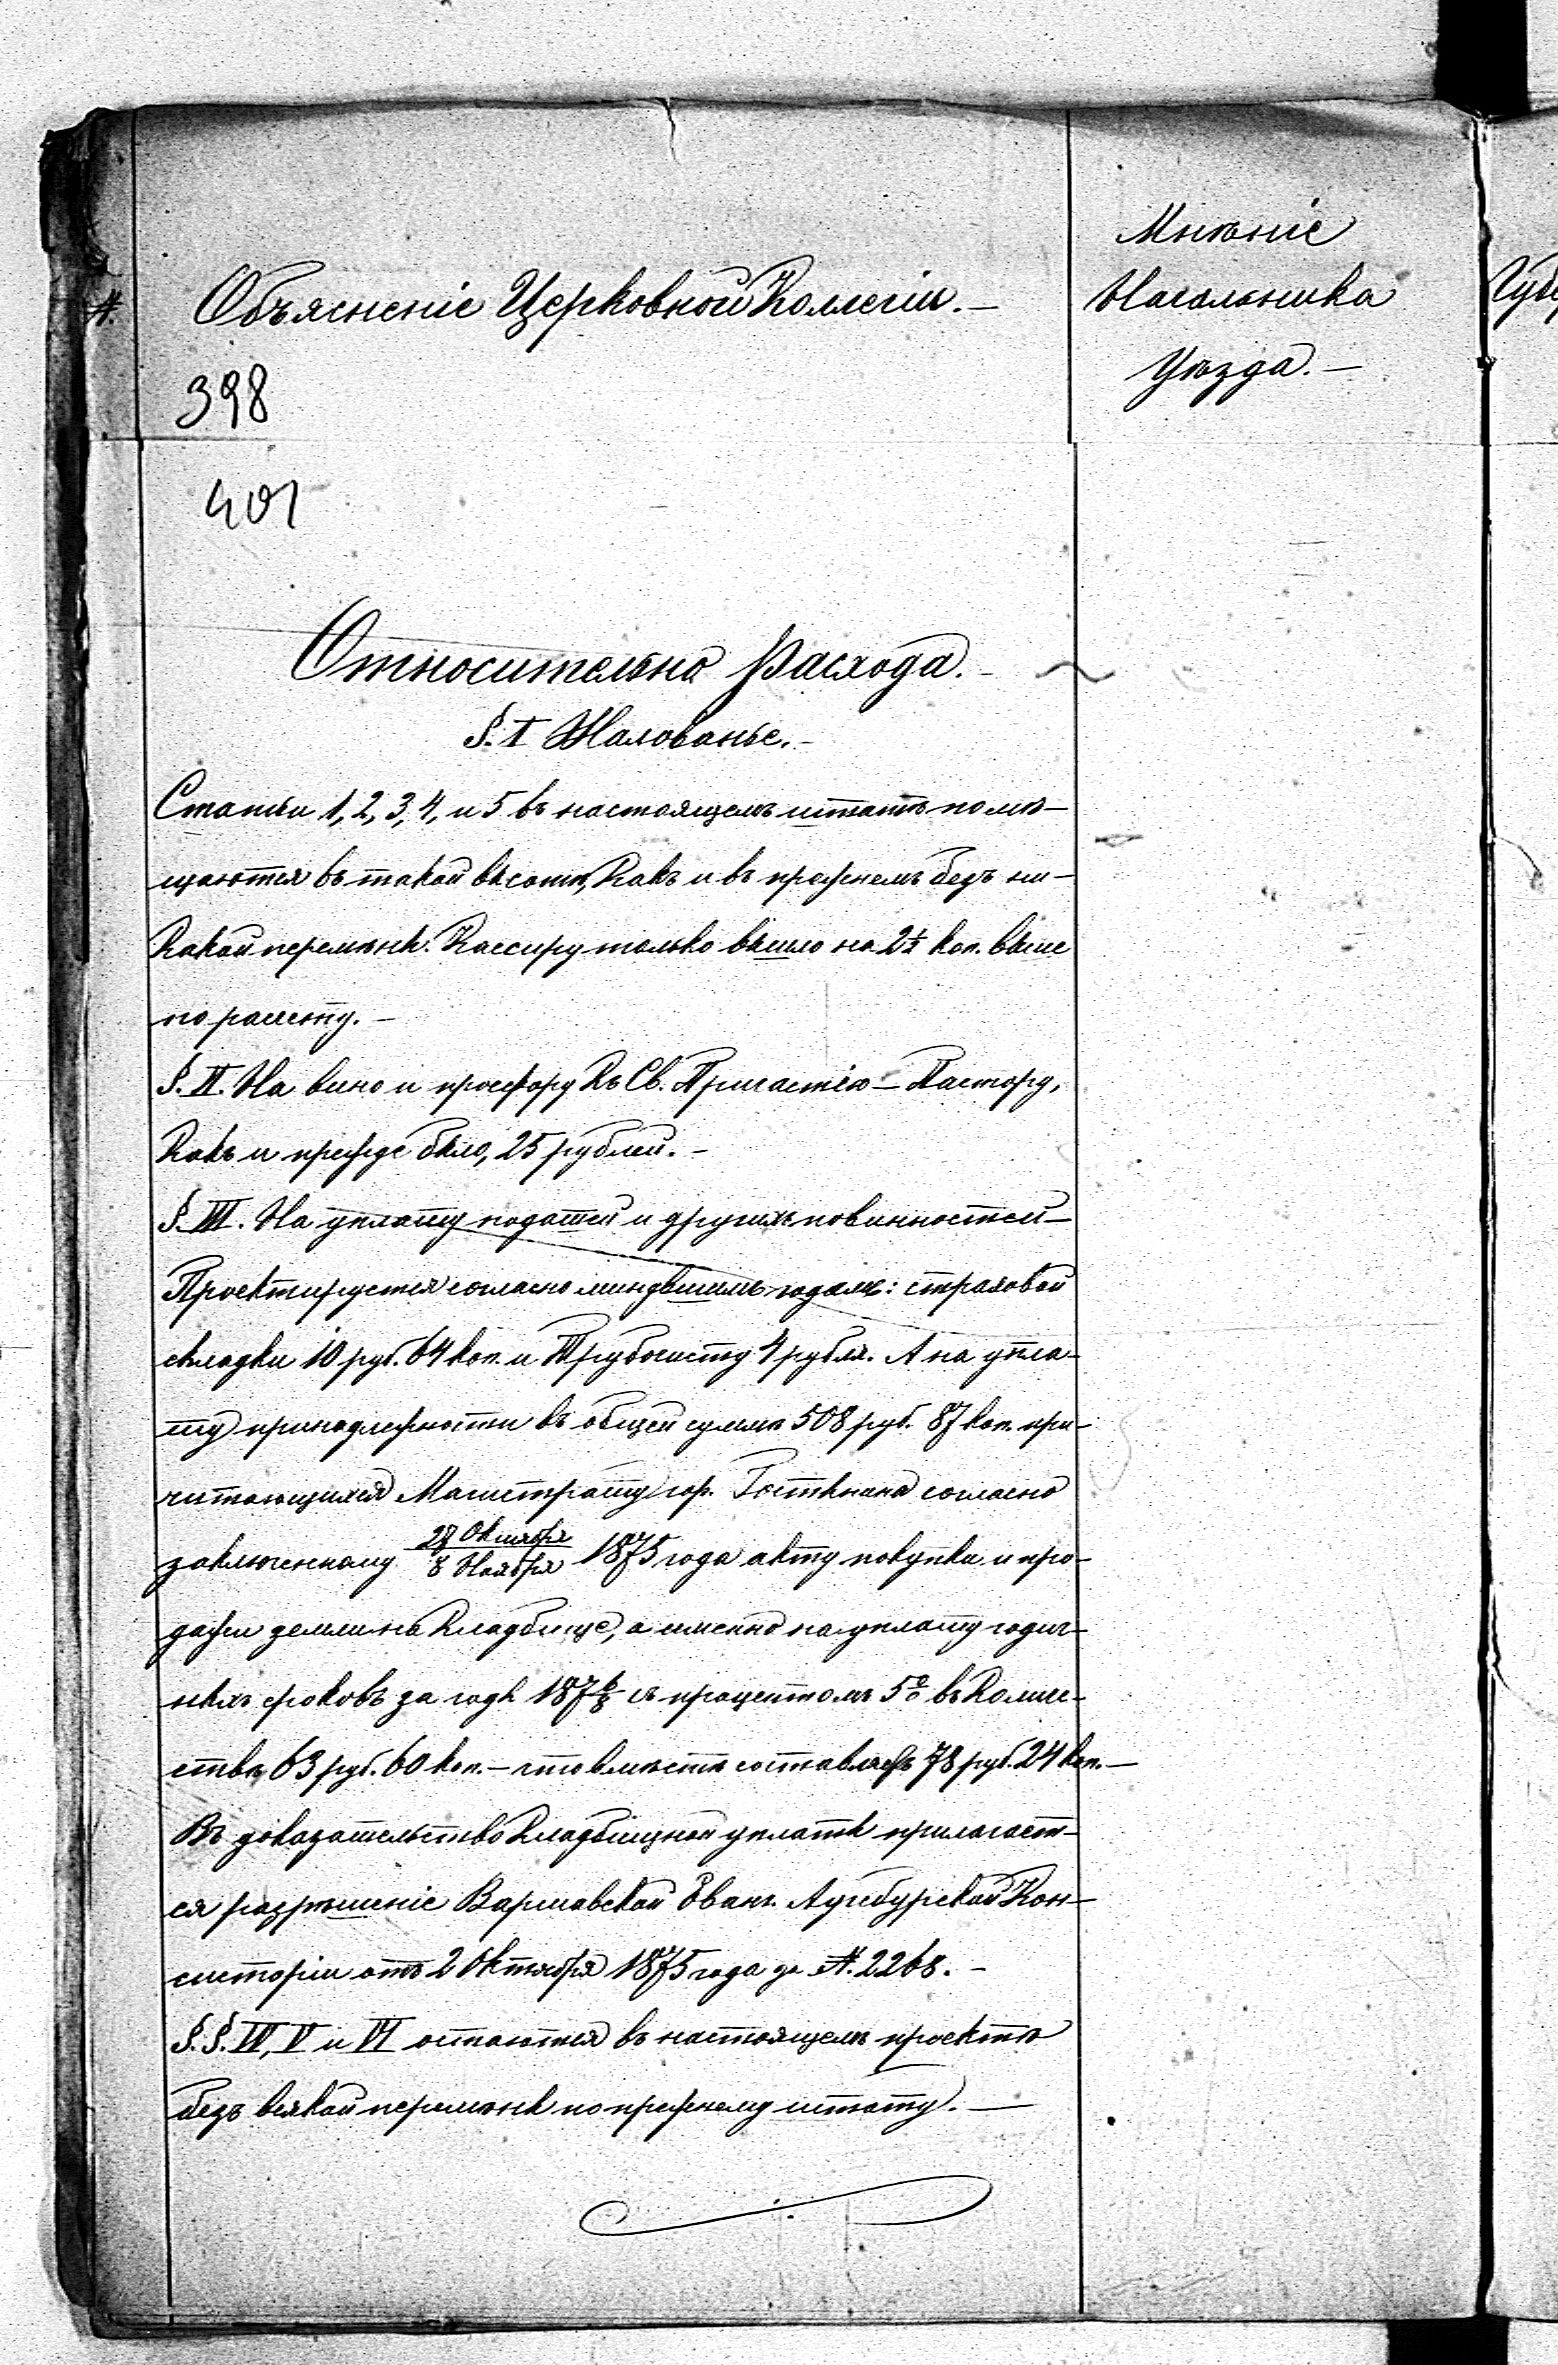 Мнѣніе
Начальника
Уѣзда.—
№.
Объясненіе Церковной Коллегіи.—
398
401
Относительно Расхода.—
§. I Жалованье.—
Статьи 1, 2, 3, 4, и 5 въ настоящемъ штатѣ помѣ-
щаются въ такой высотѣ, какъ и въ прежнемъ безъ ни-
какой перемѣны. Кассиру только вышло на 2½ коп. выше
по расчету.—
§. II. На вино и просфору къ Св. Причастію — Пастору,
какъ и прежде было, 25 рублей.—
§. III. На уплату податей и другихъ повинностей —
Проектируется согласно минувшимъ годамъ: страховой
складки 10 руб. 64 коп. и Трубочисту 4 рубля. А на упла-
ту принадлежности въ общей суммѣ 508 руб. 87 коп. при-
читающихся Магистрату гор. Гостынина согласно
заключенному 27 Октября / 8 Ноября 1875 года акту покупки и про-
дажи земли на кладбище, а именно на уплату годич-
ныхъ сроковъ за годы 187 6/8 съ процентомъ 5% въ количе-
ствѣ 63 руб. 60 коп. — что вмѣстѣ составляетъ 78 руб. 24 коп.—
Въ доказательство кладбищной уплаты прилагает-
ся разрѣшеніе Варшавской Еванг. Аугсбургской Кон-
систоріи отъ 2 Октября 1875 года за №. 2268.—
§. §. IV, V и VI остаются въ настоящемъ проектѣ
безъ всякой перемѣны по прежнему штату.—